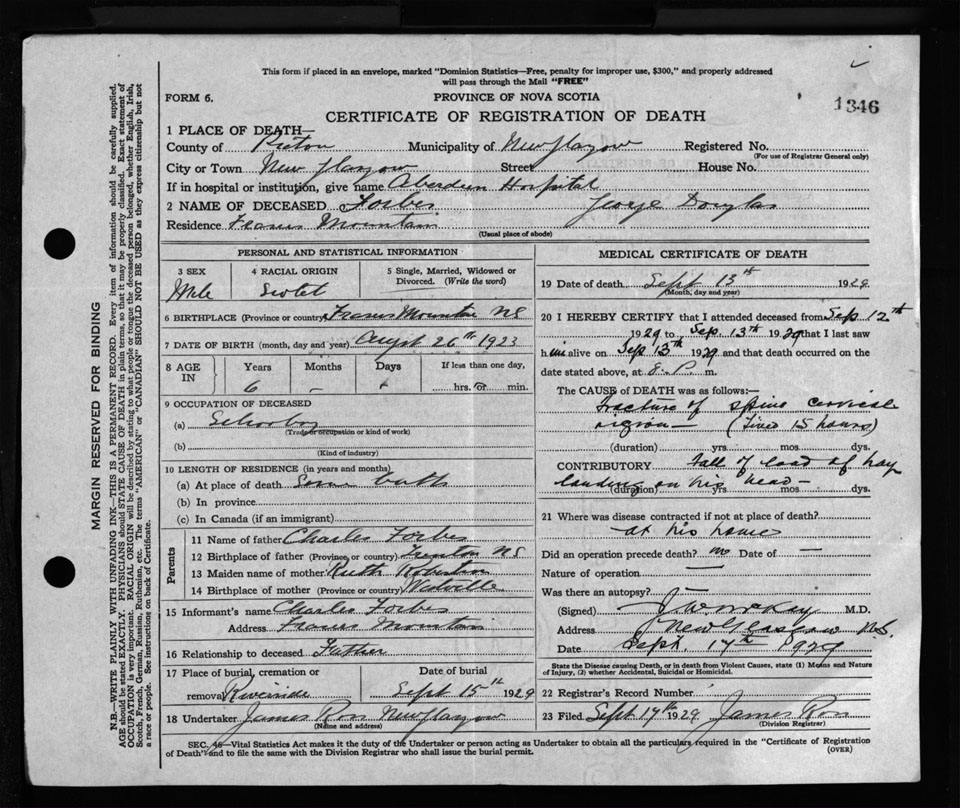 This form if placed in an envelope, marked "Dominion Statistics—Free, penalty for improper use, $300," and properly addressed
will pass through the Mail "FREE"
FORM 6.
PROVINCE OF NOVA SCOTIA
1346
CERTIFICATE OF REGISTRATION OF DEATH
1 PLACE OF DEATH—
County of Pictou Municipality of New Glasgow Registered No.
(For use of Registrar General only)
City or Town New Glasgow Street House No.
If in hospital or institution, give name Aberdeen Hospital
2 NAME OF DECEASED Forbes George Douglas
Residence Frasers Mountain
(Usual place of abode)
PERSONAL AND STATISTICAL INFORMATION
3 SEX 4 RACIAL ORIGIN 5 Single, Married, Widowed or
Divorced. (Write the word)
Male Scotch
6 BIRTHPLACE (Province or country) Frasers Mountain NS
7 DATE OF BIRTH (month, day and year) August 26th 1923
8 AGE IN Years Months Days If less than one day,
6 – hrs. or min.
9 OCCUPATION OF DECEASED
(a) School boy
(Trade or occupation or kind of work)
(b)
(Kind of industry)
10 LENGTH OF RESIDENCE (in years and months)
(a) At place of death
(b) In province
(c) In Canada (if an immigrant)
Parents
11 Name of father Charles Forbes
12 Birthplace of father (Province or country) Trenton NS
13 Maiden name of mother Ruth Robertson
14 Birthplace of mother (Province or country) Westville
15 Informant's name Charles Forbes
Address Frasers Mountain
16 Relationship to deceased Father
17 Place of burial, cremation or Date of burial
removal Riverside Sept 15th 1929
18 Undertaker James Ross New Glasgow
(Name and address)
MEDICAL CERTIFICATE OF DEATH
19 Date of death Sept 13th 1929
(Month, day and year)
20 I HEREBY CERTIFY that I attended deceased from Sep 12th
1929 to Sep 13th 1929 that I last saw
him alive on Sep 13th 1929 and that death occurred on the
date stated above, at 8 P. m.
The CAUSE of DEATH was as follows:—
Fracture of spine cervical
region — (Lived 15 hours)
(duration) yrs. mos dys.
CONTRIBUTORY Fall of load of hay
landing on his head —
(duration) yrs mos dys.
21 Where was disease contracted if not at place of death?
at his home
Did an operation precede death? no Date of —
Nature of operation —
Was there an autopsy? —
(Signed) J. W. McKay M.D.
Address New Glasgow N.S.
Date Sept. 17th 1929
State the Disease causing Death, or in death from Violent Causes, state (1) Means and Nature
of Injury, (2) whether Accidental, Suicidal or Homicidal.
22 Registrar's Record Number
23 Filed Sept 17th 1929 James Ross
(Division Registrar)
SEC. 46—Vital Statistics Act makes it the duty of the Undertaker or person acting as Undertaker to obtain all the particulars required in the "Certificate of Registration
of Death" and to file the same with the Division Registrar who shall issue the burial permit. (OVER)
MARGIN RESERVED FOR BINDING
N.B.—WRITE PLAINLY WITH UNFADING INK—THIS IS A PERMANENT RECORD. Every item of information should be carefully supplied.
AGE should be stated EXACTLY. PHYSICIANS should STATE CAUSE OF DEATH in plain terms, so that it may be properly classified. Exact statement of
OCCUPATION is very important. RACIAL ORIGIN will be described by stating to what people or tongue the deceased person belonged, whether English, Irish,
Scotch, French, German, Russian, Ruthenian, etc. The terms "AMERICAN" or "CANADIAN" SHOULD NOT BE USED as they express citizenship but not
a race or people. See instructions on back of Certificate.